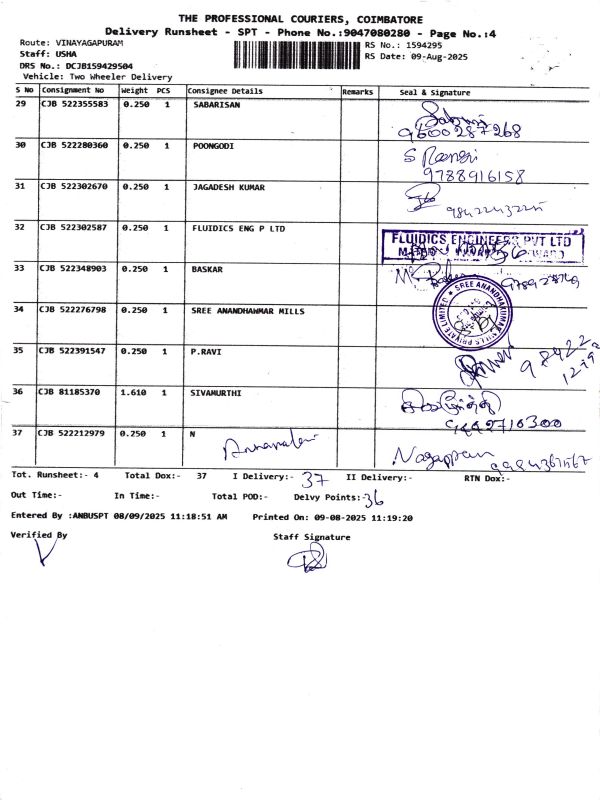 THE PROFESSIONAL COURIERS, COIMBATORE
Delivery Runsheet - SPT - Phone No.:9047080280 - Page No.:4
Route: VINAYAGAPURAM
RS No.: 1594295
Staff: USHA
RS Date: 09-Aug-2025
DRS No.: DCJB159429504
Vehicle: Two Wheeler Delivery
S No Consignment No Weight PCS Consignee Details Remarks Seal & Signature
29 CJB 522355583 0.250 1 SABARISAN
9600287268
30 CJB 522280360 0.250 1 POONGODI
9788916158
31 CJB 522302670 0.250 1 JAGADESH KUMAR
32 CJB 522302587 0.250 1 FLUIDICS ENG P LTD
FLUIDICS ENGINEERS PVT LTD
33 CJB 522348903 0.250 1 BASKAR
34 CJB 522276798 0.250 1 SREE ANANDHAWMAR MILLS
SREE ANANDHAKUMAR MILLS PRIVATE LIMITED
35 CJB 522391547 0.250 1 P.RAVI
36 CJB 81185370 1.610 1 SIVAMURTHI
37 CJB 522212979 0.250 1 N
Nagappan
Tot. Runsheet:- 4 Total Dox:- 37 I Delivery:- 37 II Delivery:- RTN Dox:-
Out Time:- In Time:- Total POD:- Delvy Points:- 36
Entered By :ANBUSPT 08/09/2025 11:18:51 AM Printed On: 09-08-2025 11:19:20
Verified By Staff Signature